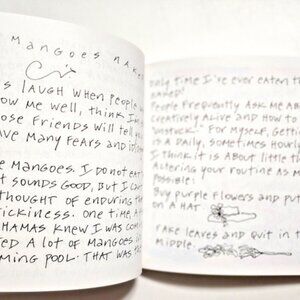 MANGOES MAKE
S LAUGH WHEN PEOPLE
OW ME WELL, THINK I'M
OSE FRIENDS WILL TELL
AVE MANY FEARS AND
E MANGOES. I DO NOT EAT
T SOUNDS GOOD, BUT I CAN
THOUGHT OF ENDURING TH
TICKINESS. ONE TIME, A
HAMAS KNEW I WAS COM
ED A LOT OF MANGOES
MING POOL. THAT WAS TH
ONLY TIME I'VE EVER EATEN TH
NAKED!
PEOPLE FREQUENTLY ASK ME ABO
CREATIVELY ALIVE AND HOW TO
UNSTUCK." FOR MYSELF, GETTING
IS A DAILY, SOMETIMES HOURLY
I THINK IT IS ABOUT LITTLE TH
ALTERING YOUR ROUTINE AS M
POSSIBLE:
BUY PURPLE FLOWERS AND PUT
ON A HAT
TAKE LEAVES AND PUT IN T
MIDDLE.